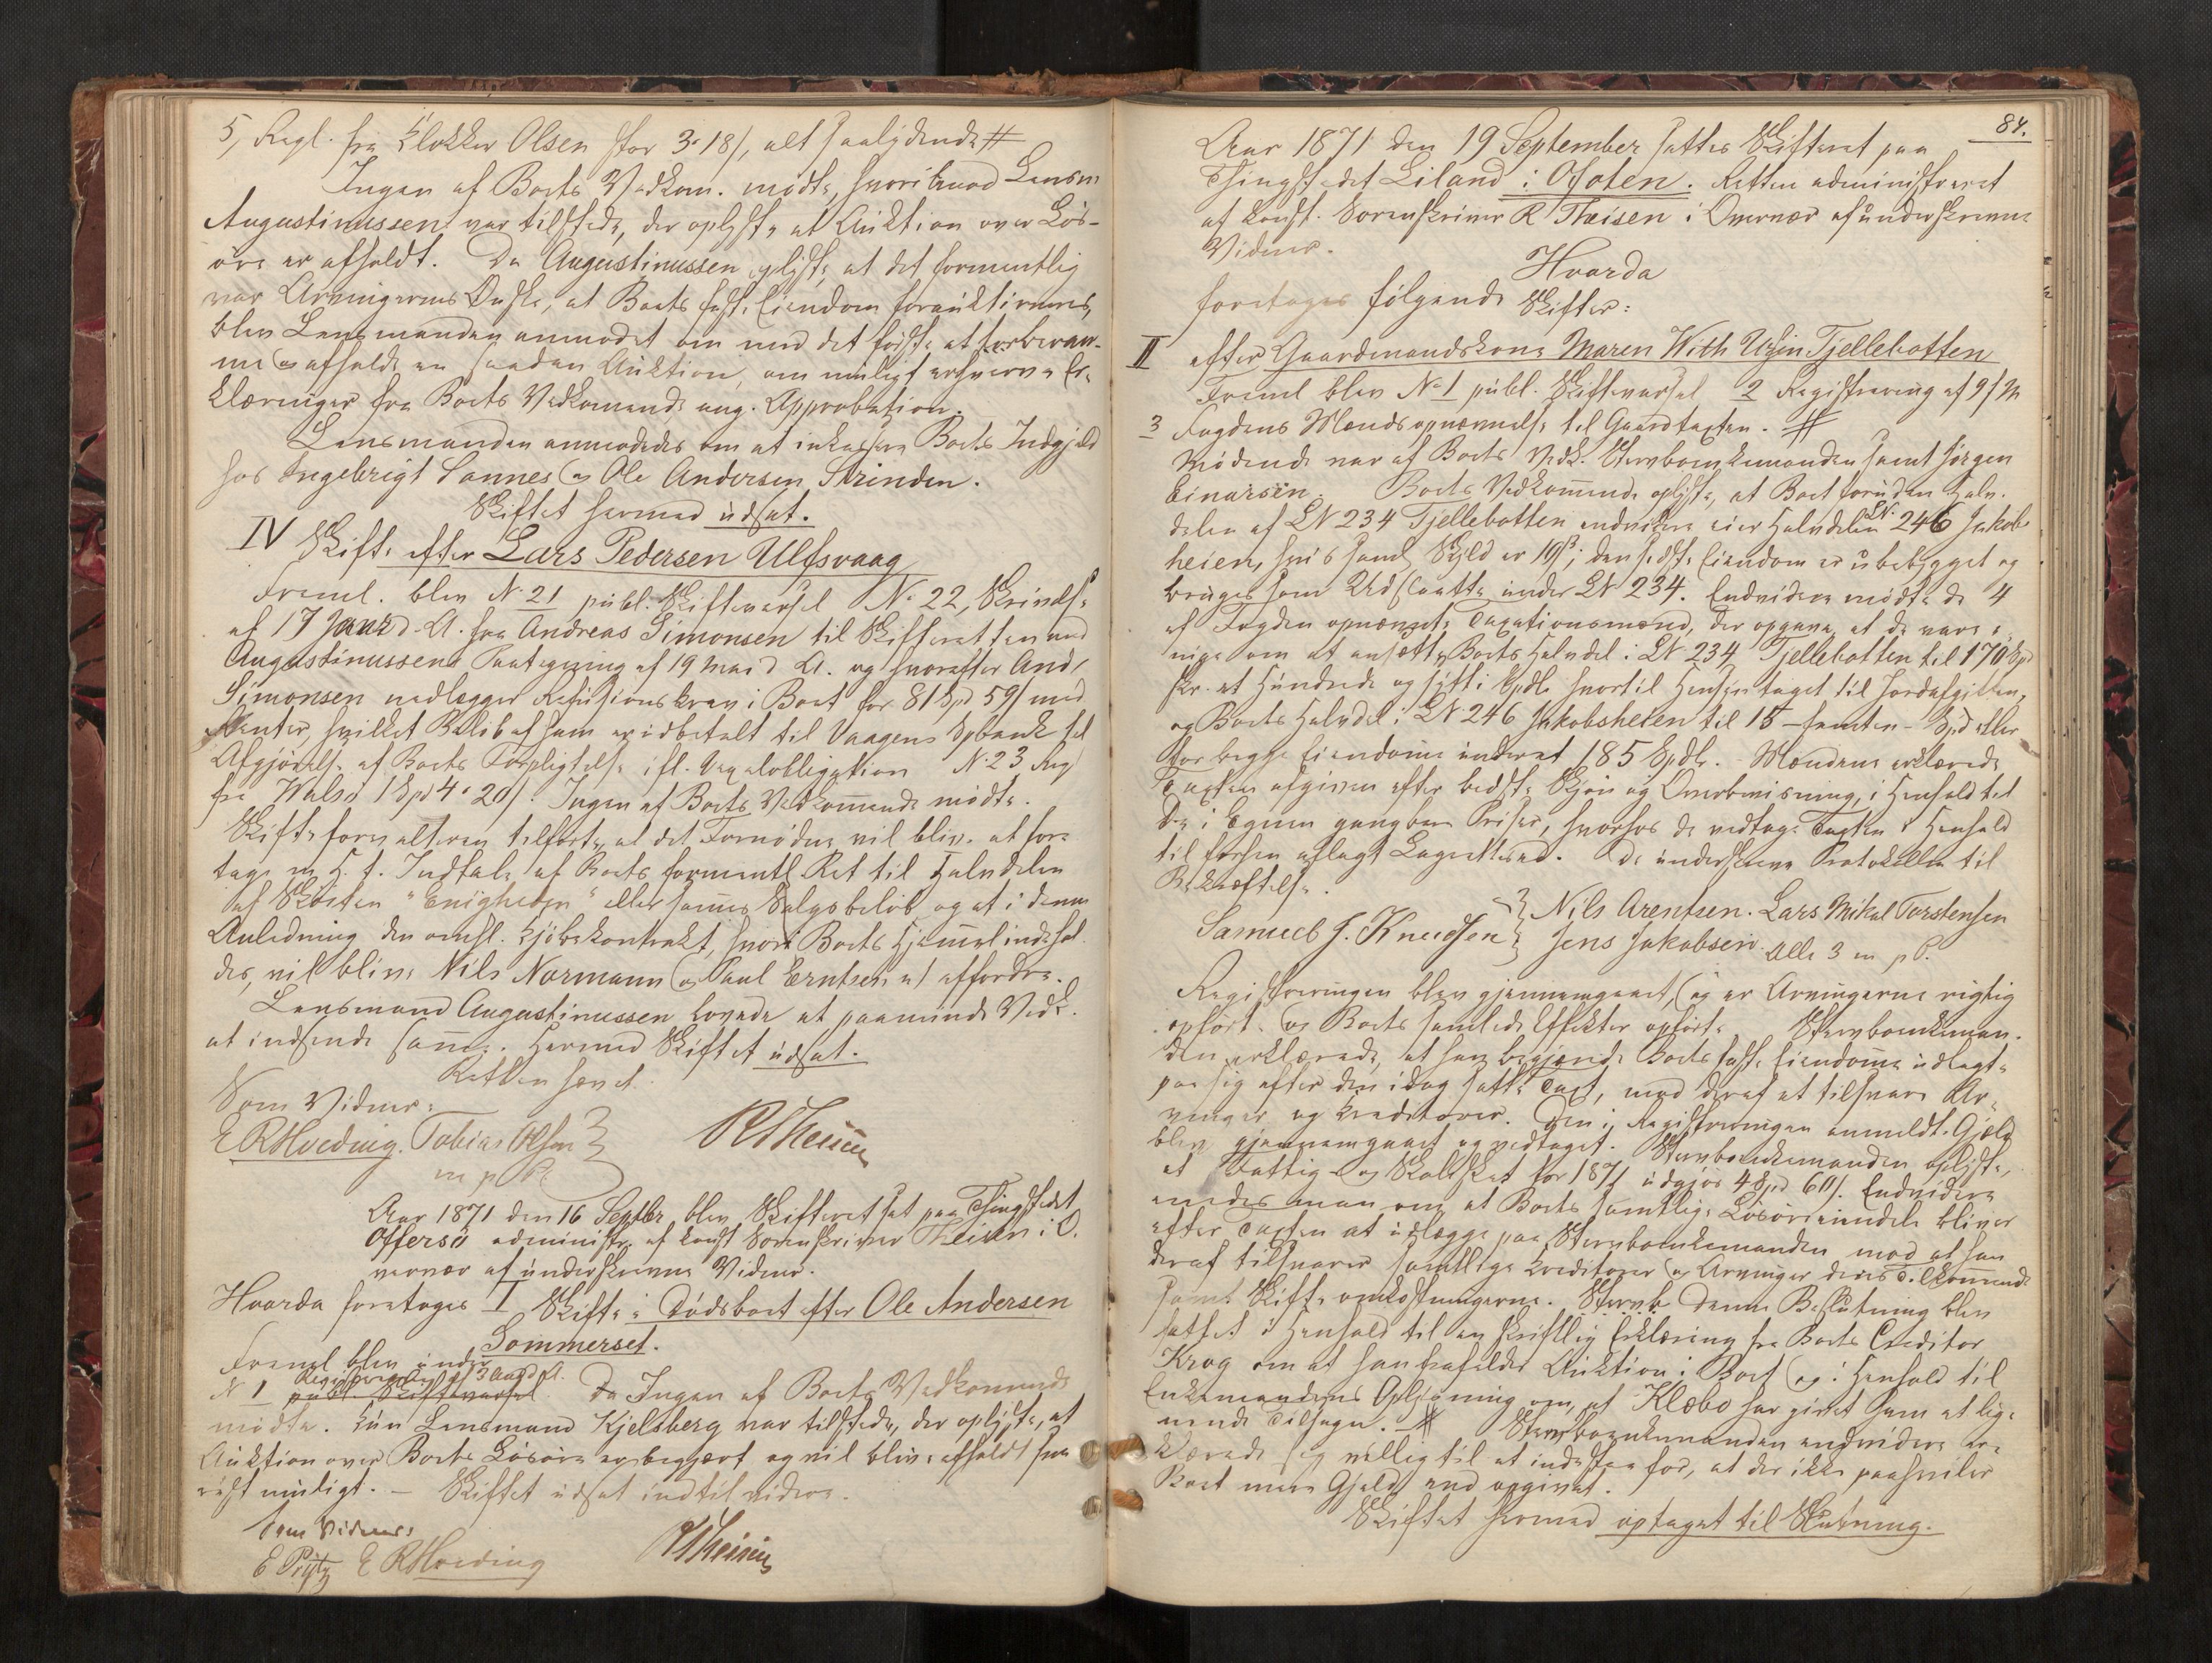 5, Regl. fra Klokker Olsen stor 3.18/, alt saalydende #
Ingen af Boets Vedkom. mødte, hvorimod Lensm
Augustinussen var tilstede, der oplyste at Auktion over Løs-
øre er afholdt. Da Augustinussen oplyste, at det formentlig
var Arvingernes Ønske, at Boets faste Eiendom forauktioneres,
blev Lensmanden anmodet om med det første at forberam-
me og afholde en saadan Auktion, om muligt erhverve Er-
klæringer fra Boets Vedkomende ang. Approbation.
Lensmanden anmodedes om at inkassere Boets Indgjæld
hos Ingebrigt Sannes og Ole Andersen Strinden.
Skiftet hermed udsat.
IV Skifte efter Lars Pedersen Ulfsvaag
Freml. blev N. 21 publ. Skiftevarsel N. 22, Skrivelse
af 17 Janr d. A. fra Andreas Simonsen til Skifteretten med
Augustinussens Paategning af 19 Mai d. A. og hvorefter And/
Simonsen nedlægger Refusionskrav i Boet for 81 Spd 59/ med
Renter, hvilket Beløb af ham er udbetalt til Vaagens Spbank til
Afgjørelse af Boets Forpligtelse ifl. Vexelobligation N. 23 Reg/
fra Walsø 1 Spd 4. 20/. Ingen af Boets Vedkommende mødte.
Skifteforvalteren tilførte, at det Fornødne vil blive at fore-
tage m. H. t. Indtale af Boets formentl. Ret til Halvdelen
af Skøiten "Enigheden" eller sammes Salgsbeløb og at i denne
Anledning den omhl. Kjøbekontrakt, hvori Boets Hjemmel indehol-
des, vil blive Nils Normann og Paul Erntsen a/ affordre.
Lensmand Augustinussen lovede at paaminde Vedk.
at indsende samme. Hermed Skiftet udsat.
Retten hævet.
Som Vidner:
E R Hveding. Tobias Olsen
m p P.
R Theisen
Aar 1871 den 16 Septbr blev Skifteret sat paa Thingstedet
Offersø administr. af konst Sorenskriver Theisen i O-
vervær af underskrevne Vidner.
Hvorda foretoges I Skifte i Dødsboet efter Ole Andersen
Sommerset.
Freml blev under
Registrering af 3 Aug d. A.
N 1 publ. Skiftevarsel. Da Ingen af Boets Vedkommende
mødte. Kun Lensmand Kjelsberg var tilstede, der oplyste, at
Auktion over Boets Løsøre er begjært og vil blive afholdt saa
vidst muligt. – Skiftet udsat indtil videre.
Som Vidner:
E Prytz E R Hveding
R Theisen
84.
Aar 1871 den 19 September sattes Skifteret paa
Thingstedet Liland i Ofoten. Retten administreret
af konst. Sorenskriver R Theisen i Overvær af underskrevne
Vidner.
Hvorda
foretoges følgende Skifter:
II efter Gaardmandskone Maren With Urfin Tjellebotten
Freml blev N. 1 publ. Skiftevarsel 2 Registrering af 9/ M
3 Fogdens Mændsopnævnelse til Gaardtaxten. #
Mødende var af Boets Vedk. Stervboenkemanden samt Jørgen
Einarsen. Boets Vedkommende oplyste, at Boet foruden Halv-
delen af LN 234 Tjellebotten endvidere eier Halvdelen LN. 246 Jakobs
heien, hvis saml Skyld er 19ß; den sidste Eiendom er ubebygget og
bruges som Udslaatte under LN 234. Endvidere mødte de 4
af Fogden opnævnte Taxationsmænd, der opgave at de vare e-
nige om at ansætte Boets Halvdel i LN 234 Tjellebotten til 170 Spd
skr. et Hundrede og sytti Spdl. hvortil Hensyn taget til Jordafgiften,
og Boets Halvdel i LN 246 Jakobsheien til 15 – femten – Spd eller
for begge Eiendomme iberet 185 Spdl. – Mændene erklærede
Taxten afgiven efter bedste Skjøn og Overbevisning, i Henhold til
de i Egnen gangbare Priser, hvorhos de vedtoge Taxten i Henhold
til forhen aflagt Lagrettesed. De underskreve Protokollen til
Bekræftelse.
Samuel J. Knudsen Nils Arentsen. Lars Mikal Torstensen
Jens Jakobsen. Alle 3 m p P.
Registreringen blev gjennemgaaet, og er Arvingerne rigtig
opført og Boets samlede Effekter opførte. Stervboenkeman-
den erklærede, at han begjærede Boets faste Eiendomme udlagt
paa sig efter den idag satte Taxt, mod deraf at tilsvare Ar-
vinger og Kreditorer. Den i Registreringen anmeldte Gjæld
blev gjennemgaaet og vedtaget. Stervboenkemanden oplyste,
at Fattig- og Skoleskat for 1871 udgjør 4 Spd 60/. Endvidere
enedes man om at Boets samtlige Løsøreeiendele bliver
efter Taxten at udlægge paa Stervboenkemanden mod at han
deraf tilsvarer samtlige Kreditorer og Arvinger deres Tilkommende
samt Skifteomkostningerne. Stervb Denne Beslutning blev
fattet i Henhold til en skriftlig Erklæring fra Boets Creditor
Krog om at han frafalder Auktion i Boet og i Henhold til
Enkemandens Oplysning om, at Klæbo har givet ham et lig-
nende Tilsagn. # Stervboenkemanden endvidere er-
klærede sig villig til at indestaa for, at der ikke paahviler
Boet mere Gjæld end opgivet.
Skiftet hermed optaget til Slutning.